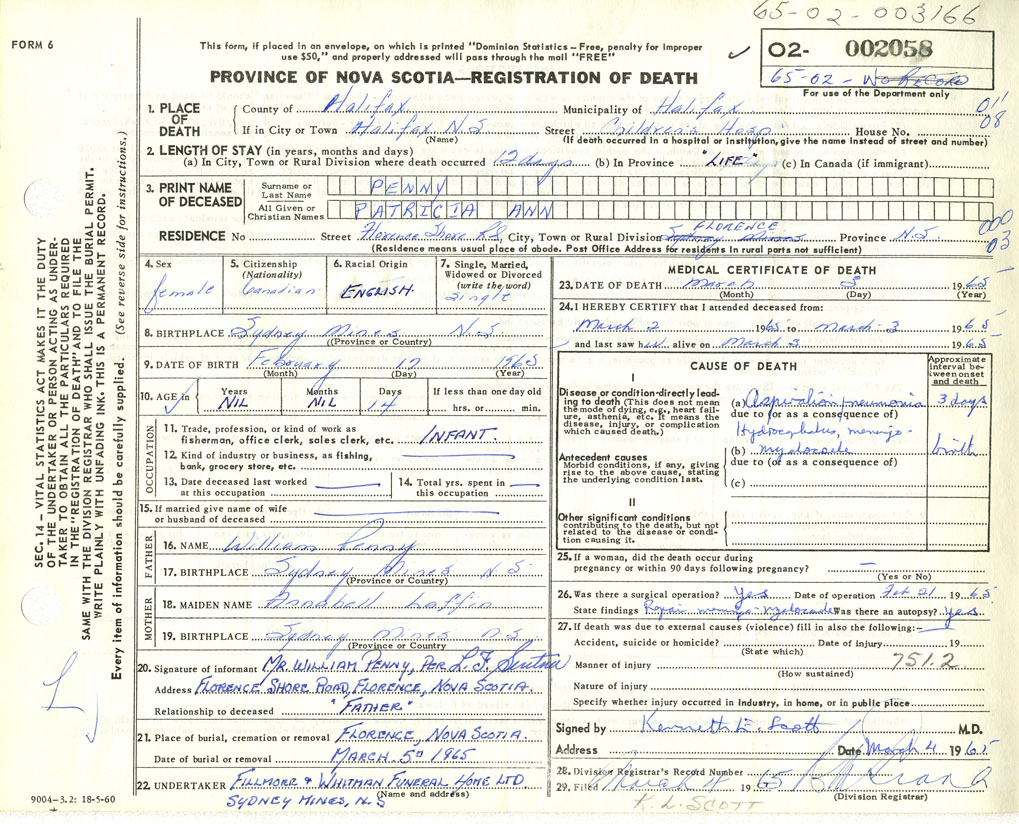 65-02-003166
FORM 6
This form, if placed in an envelope, on which is printed "Dominion Statistics – Free, penalty for improper
use $50," and properly addressed will pass through the mail "FREE"
✓ 02- 002058
65-02 - No Record
For use of the Department only
PROVINCE OF NOVA SCOTIA—REGISTRATION OF DEATH
1. PLACE OF DEATH
County of Halifax Municipality of Halifax 011
If in City or Town Halifax N.S Street Children's Hosp House No. 08
(Name) (If death occurred in a hospital or institution, give the name instead of street and number)
2. LENGTH OF STAY (in years, months and days)
(a) In City, Town or Rural Division where death occurred 12 days (b) In Province "LIFE" (c) In Canada (if immigrant)
3. PRINT NAME OF DECEASED
Surname or Last Name PENNY
All Given or Christian Names PATRICIA ANN
FLORENCE 000
RESIDENCE No Street Florence Shore Rd, City, Town or Rural Division Sydney Mines Province N.S. 03
(Residence means usual place of abode. Post Office Address for residents in rural parts not sufficient)
4. Sex
female
5. Citizenship
(Nationality)
Canadian
6. Racial Origin
ENGLISH.
7. Single, Married,
Widowed or Divorced
(write the word)
Single
8. BIRTHPLACE Sydney Mines N.S
(Province or Country)
9. DATE OF BIRTH February 17 1965
(Month) (Day) (Year)
10. AGE in
Years Months Days If less than one day
NIL NIL 14 hrs. or min.
OCCUPATION
11. Trade, profession, or kind of work as
fisherman, office clerk, sales clerk, etc. INFANT.
12. Kind of industry or business, as fishing,
bank, grocery store, etc.
13. Date deceased last worked
at this occupation
14. Total yrs. spent in
this occupation
15. If married give name of wife
or husband of deceased
FATHER
16. NAME William Penny
17. BIRTHPLACE Sydney Mines N.S.
(Province or Country)
MOTHER
18. MAIDEN NAME Annabell Laffin
19. BIRTHPLACE Sydney Mines N.S.
(Province or Country)
20. Signature of informant MR WILLIAM PENNY, PER L.F.
Address FLORENCE SHORE ROAD, FLORENCE, NOVA SCOTIA.
Relationship to deceased "FATHER"
21. Place of burial, cremation or removal FLORENCE, NOVA SCOTIA.
Date of burial or removal MARCH 5 1965
22. UNDERTAKER FILLMORE & WHITMAN FUNERAL HOME LTD.
(Name and address)
SYDNEY MINES, N.S
9004-3.2: 18-5-60
MEDICAL CERTIFICATE OF DEATH
23. DATE OF DEATH March 3 1965
(Month) (Day) (Year)
24. I HEREBY CERTIFY that I attended deceased from:
March 2 1965 to March 3 1965
and last saw h alive on March 3 1965
CAUSE OF DEATH
Approximate
interval be-
tween onset
and death
I
Disease or condition directly lead-
ing to death (This does not mean
the mode of dying, e.g., heart fail-
ure, asthenia, etc. It means the
disease, injury, or complication
which caused death.)
(a) Aspiration pneumonia 3 days
due to (or as a consequence of)
Hydrocephalus, meningo-
Antecedent causes
Morbid conditions, if any, giving
rise to the above cause, stating
the underlying condition last.
(b) myelocoele birth
due to (or as a consequence of)
(c)
II
Other significant conditions
contributing to the death, but not
related to the disease or condi-
tion causing it.
25. If a woman, did the death occur during
pregnancy or within 90 days following pregnancy? —
(Yes or No)
26. Was there a surgical operation? Yes Date of operation Feb. 21 1965
State findings Repair meningo-myelocoele Was there an autopsy? Yes
27. If death was due to external causes (violence) fill in also the following:—
Accident, suicide or homicide? Date of injury 19
(State which)
Manner of injury 751.2
(How sustained)
Nature of injury
Specify whether injury occurred in Industry, in home, or in public place
Signed by Kenneth E. Scott M.D.
Address Date March 4 1965
28. Division Registrar's Record Number
29. Filed March 4 1965
(Division Registrar)
K. L. SCOTT
SEC. 14 – VITAL STATISTICS ACT MAKES IT THE DUTY
OF THE UNDERTAKER OR PERSON ACTING AS UNDER-
TAKER TO OBTAIN ALL THE PARTICULARS REQUIRED
IN THE "REGISTRATION OF DEATH" AND TO FILE THE
SAME WITH THE DIVISION REGISTRAR WHO SHALL ISSUE THE BURIAL PERMIT.
WRITE PLAINLY WITH UNFADING INK. THIS IS A PERMANENT RECORD.
Every item of information should be carefully supplied. (See reverse side for instructions.)